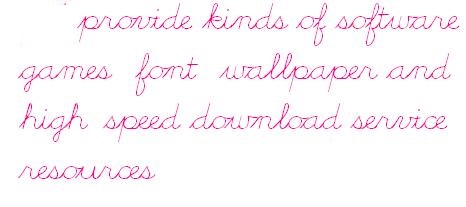 provide kinds of software
games font wallpaper and
high speed download service
resources